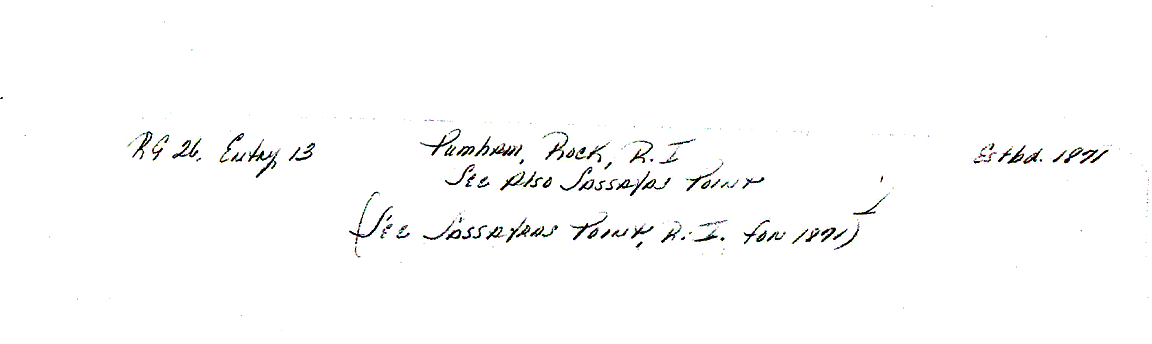 RG 26, Entry 13 Pumham, Rock, R.I Estbd. 1871
See Also Sassafras Point
(See Sassafras Point, R.I. for 1871)